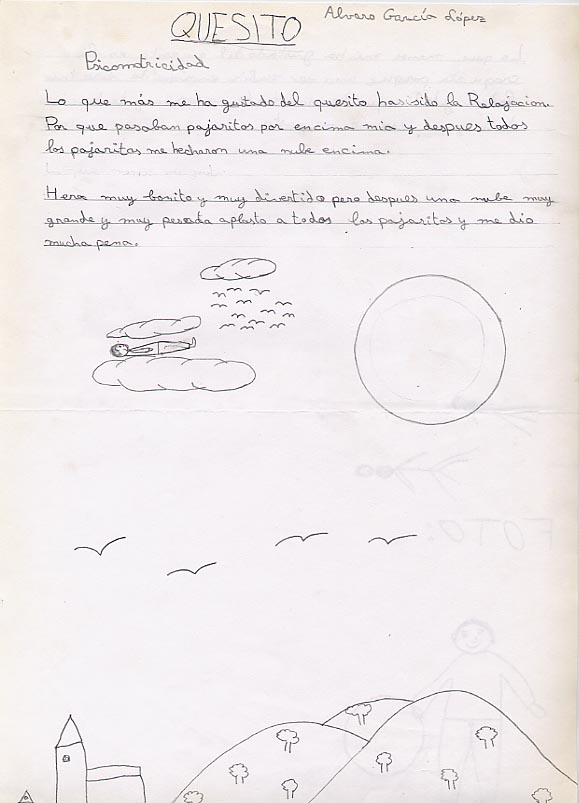 QUESITO
Alvaro García López
Psicomotricidad
Lo que más me ha gustado del quesito has sido la Relajacion.
Por que pasaban pajaritos por encima mia y despues todos
los pajaritos me hecharon una nube encima.
Hera muy bonito y muy divertido pero despues una nube muy
grande y muy pesada aplasto a todos los pajaritos y me dio
mucha pena.
FOTO: